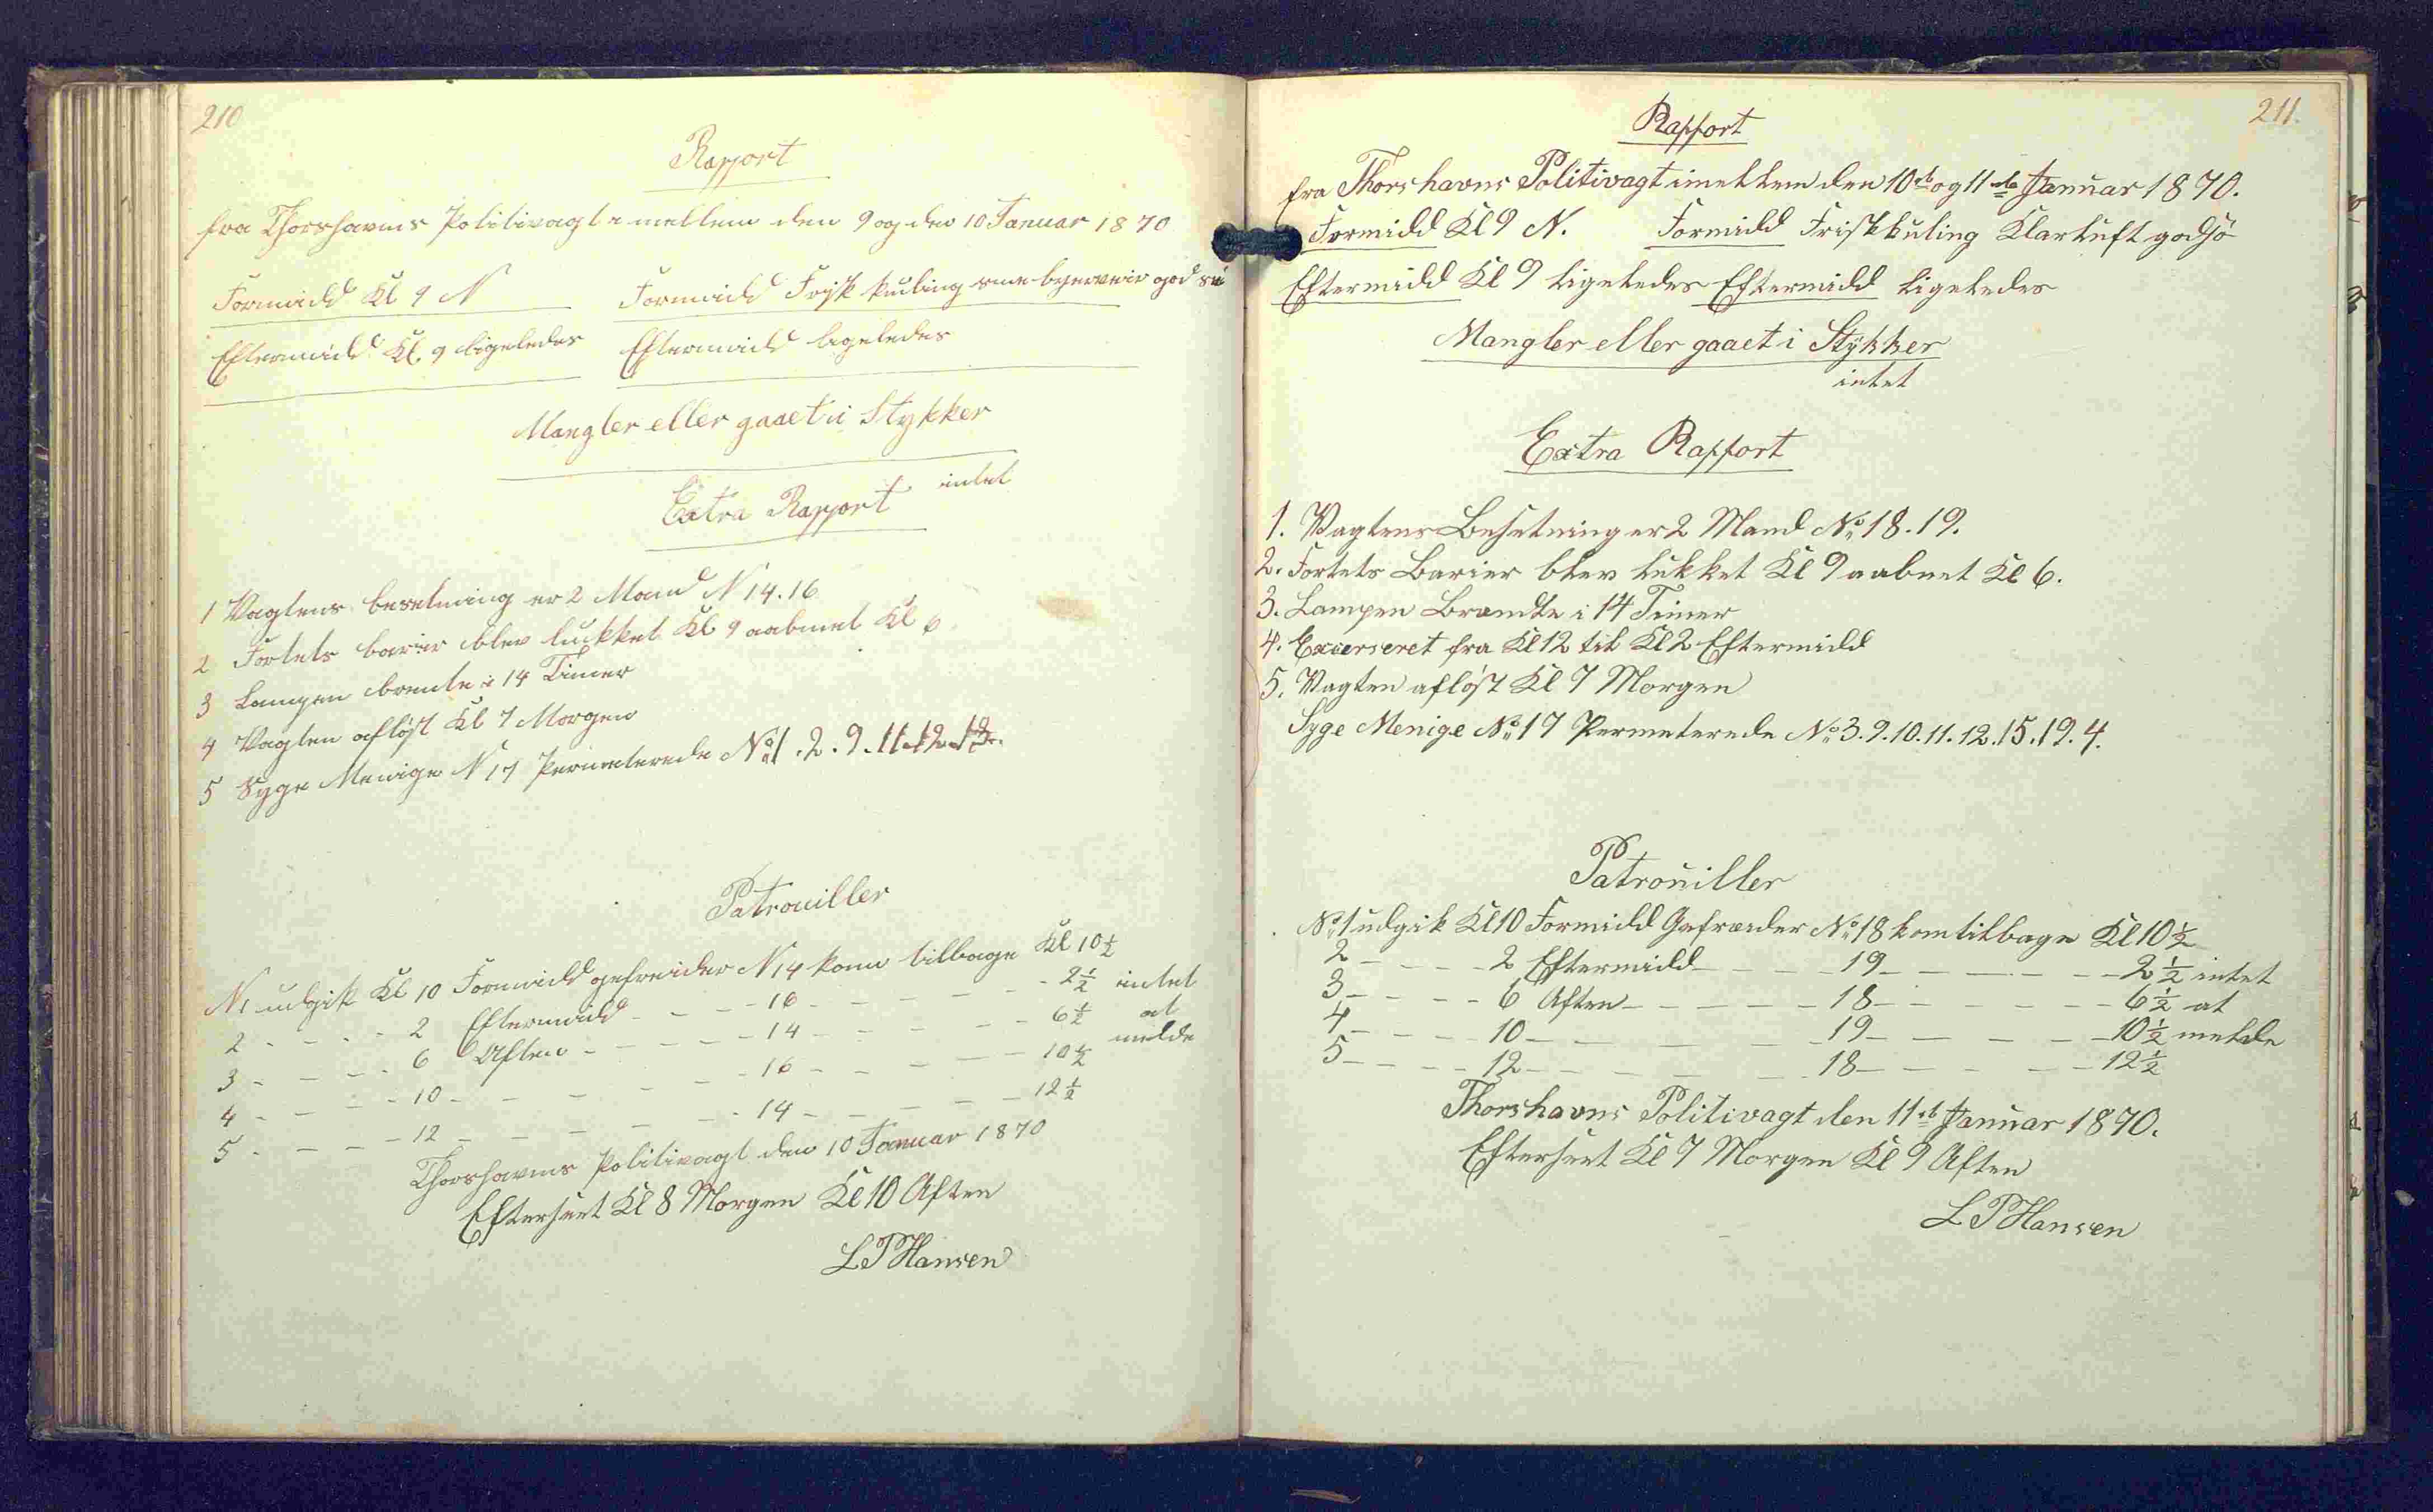 210
Rapport
fra Thorshavns Politivagt imellem den 9 og den 10 Januar 1870
Formidd Kl 9 N Formidd Frisk kuling sne byerveir god sø
Eftermidd Kl. 9 ligeledes Eftermidd ligeledes
Mangler eller gaaet i Stykker
intet
Extra Rapport
1 Vagtens besetning er 2 Mand N 14. 16
2 Fortets barier blev lukket Kl 9 aabnet Kl 6
3 Lampen brente i 14 Timer
4 Vagten afløst Kl 7 Morgen
5 Syge Menige N 17 Permeterede No 1. 2. 9. 11. 12.
Patrouiller
N1 udgik Kl 10 Formidd gefreider N 14 kom tilbage Kl 10 1/2
2 - - - - 2 Eftermidd - - - 16 - - - - - 2 1/2 intet
3 - - - - 6 Aften - - - - - 14 - - - - - 6 1/2 at
4 - - - - 10 - - - - - - 16 - - - - - 10 1/2 melde
5 - - - - 12 - - - - - - 14 - - - - - 12 1/2
Thorshavns Politivagt den 10 Januar 1870
Efterseet Kl 8 Morgen Kl 10 Aften
L P Hansen
211.
Rapport
fra Thorshavns Politivagt imellem den 10de og 11de Januar 1870.
Formidd Kl 9 N. Formidd Frisk kuling Klarluft godsø
Eftermidd Kl 9 ligeledes Eftermidd ligeledes
Mangler eller gaaet i Stykker
intet
Extra Rapport
1. Vagtens Besetning er 2 Mand No 18. 19.
2. Fortets Barier blev lukket Kl 9 aabnet Kl 6.
3. Lampen Brændte i 14 Timer
4. Exerseret fra Kl 12 til Kl 2 Eftermidd
5. Vagten afløst Kl 7 Morgen
Syge Menige No 17 Permeterede No 3. 9. 10. 11. 12. 15. 19. 4.
Patrouiller
No 1 udgik Kl 10 Formidd Gefreider No 18 kom tilbage Kl 10 1/2
2 - - - - 2 Eftermidd - - - - 19 - - - - - - 2 1/2 intet
3 - - - - 6 Aften - - - - - 18 - - - - - - 6 1/2 at
4 - - - - 10 - - - - - - 19 - - - - - 10 1/2 melde
5 - - - - 12 - - - - - - 18 - - - - - 12 1/2
Thorshavns Politivagt den 11te Januar 1870.
Efterseet Kl 7 Morgen Kl 9 Aften
L P Hansen